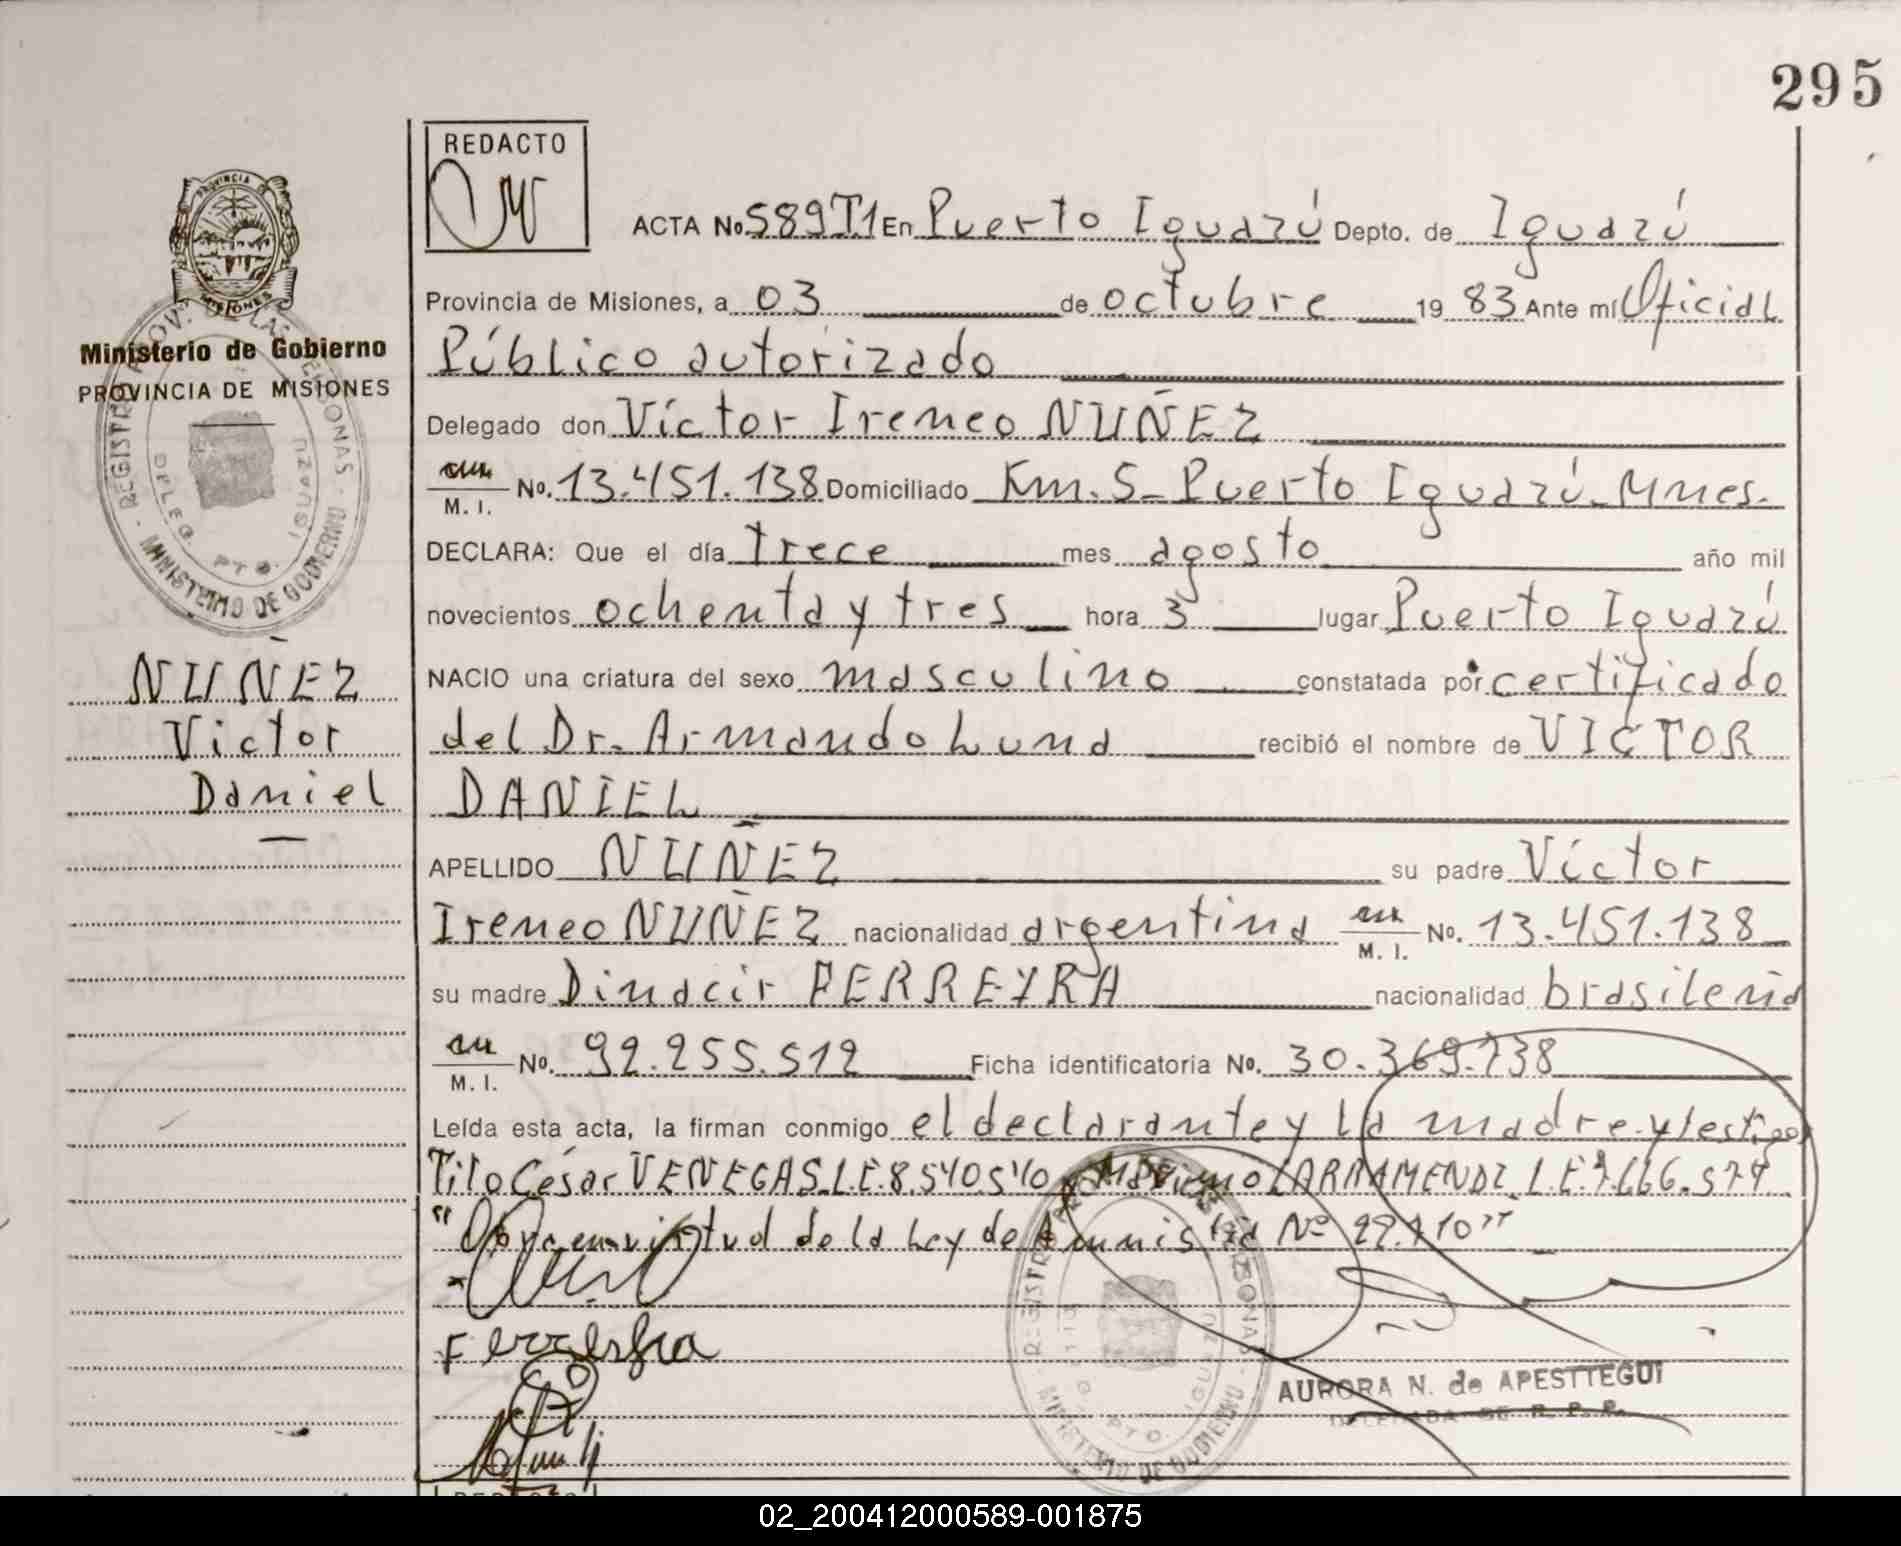 295
REDACTO
ACTA No. 589T1 En Puerto Iguazú Depto. de Iguazú
Provincia de Misiones, a 03 de octubre 19 83 Ante mí Oficial
Público autorizado
Delegado don Víctor Ireneo NUÑEZ
M. I. No. 13.451.138 Domiciliado Km. 5_ Puerto Iguazú_Mnes.
DECLARA: Que el día trece mes agosto año mil
novecientos ochenta y tres hora 3 lugar Puerto Iguazú
NACIO una criatura del sexo masculino constatada por certificado
del Dr. Armando Luna recibió el nombre de VICTOR
DANIEL
APELLIDO NUÑEZ su padre Víctor
Ireneo NUÑEZ nacionalidad argentina M. I. No. 13.451.138
su madre Dinacir FERREYRA nacionalidad brasileña
M. I. No. 92.255.512 Ficha identificatoria No. 30.369.738
Leída esta acta, la firman conmigo el declarante y la madre y testigos
Tito César VENEGAS L.E. 8.540.540 y Máximo LARRAMENDI L.E. 7.666.574
"Obra en virtud de la Ley de Amnistía Nº 22.410"
Ferreyra
AURORA N. de APESTTEGUI
DELEGADA DE R. P. P.
PROVINCIA DE
MISIONES
Ministerio de Gobierno
PROVINCIA DE MISIONES
REGISTRO PROV. DE LAS PERSONAS
MINISTERIO DE GOBIERNO
NUÑEZ
Victor
Daniel
02_200412000589-001875